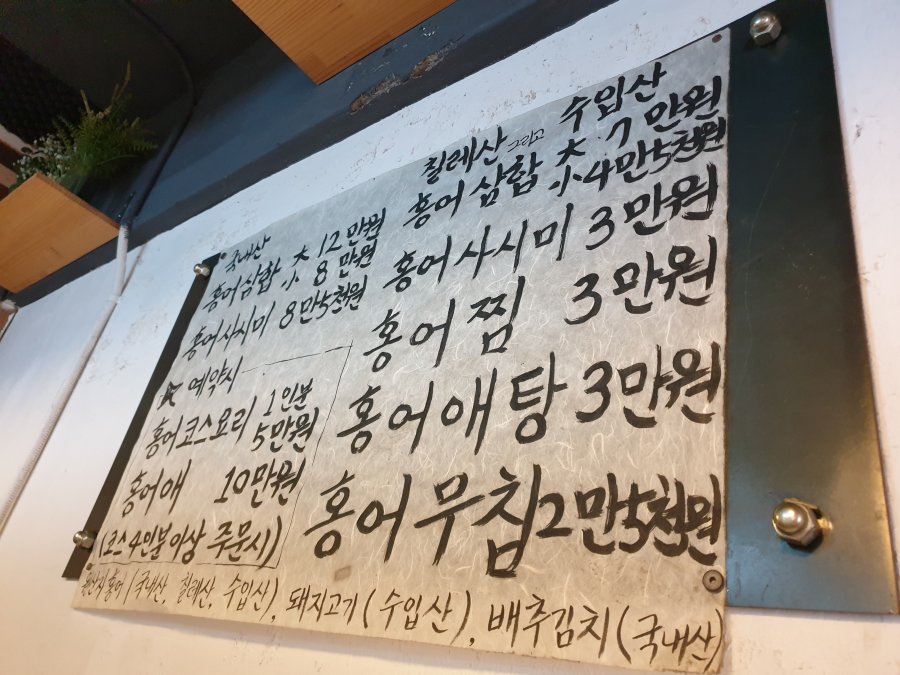 국내산
홍어삼합 大 12만원
小 8만원
홍어사시미 8만5천원
★ 예약시
홍어코스요리 1인분
5만원
홍어애 10만원
(코스4인분이상 주문시)
칠레산 그리고 수입산
홍어삼합 大 7만원
小 4만5천원
홍어사시미 3만원
홍어찜 3만원
홍어애탕 3만원
홍어무침 2만5천원
원산지 홍어(국내산, 칠레산, 수입산), 돼지고기(수입산), 배추김치(국내산)